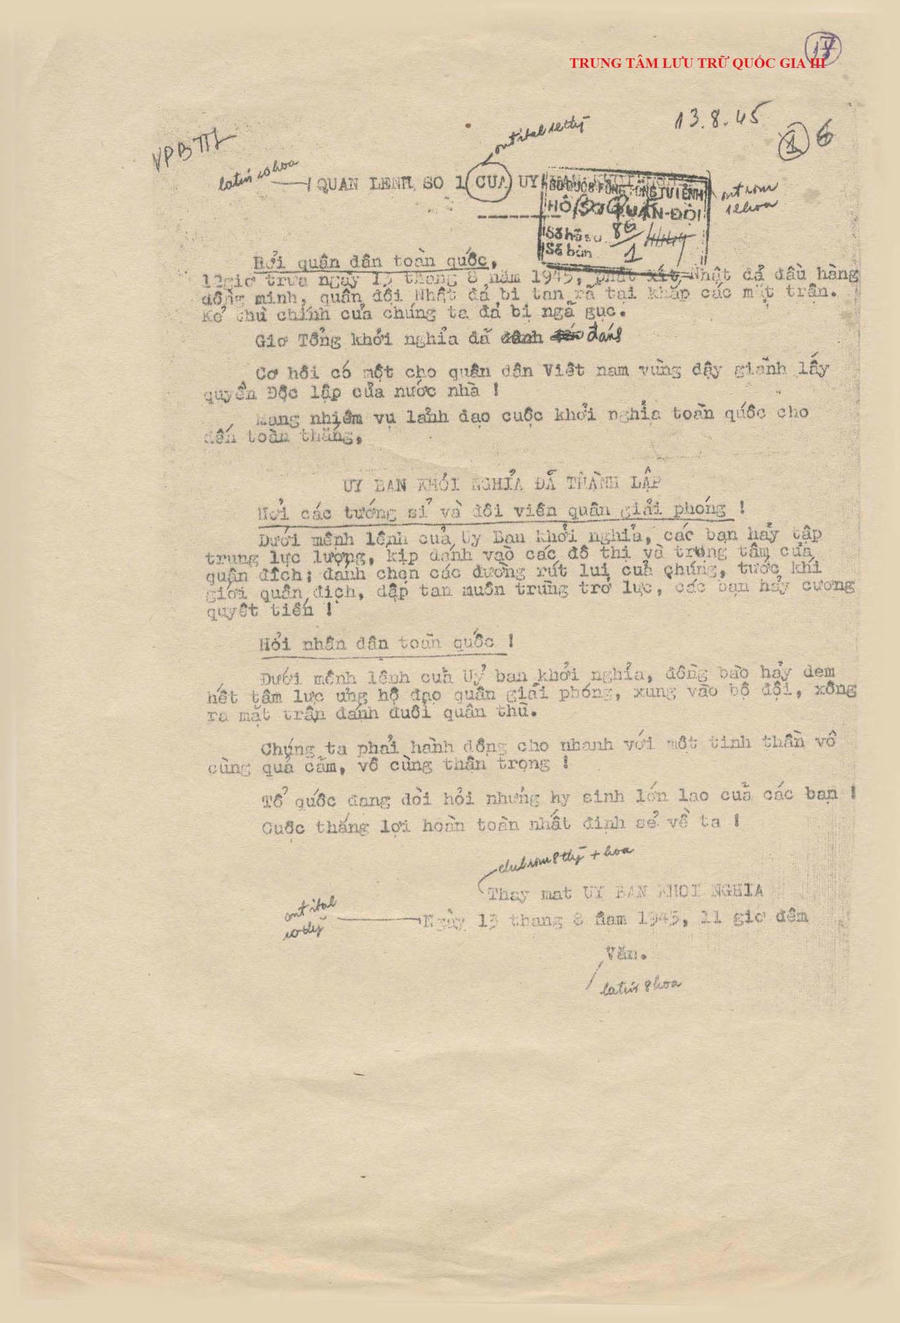 17
TRUNG TÂM LƯU TRỮ QUỐC GIA III
13.8.45
6
VPBTTL
latin 10 hoa
ont ital 12 thg
ont rom
12 hoa
QUAN LENH SO 1 CUA UY
BO QUOC PHONG TONG TU LENH
HỒ SƠ QUÂN-ĐỘI
Số hồ sơ 86
Số bản 1
Hởi quân dân toàn quốc,
12giơ trưa ngày 13 thang 8 năm 1945, phát xít Nhật đả đầu hàng
đồng minh, quân đôi Nhật đả bi tan rả tại khăp các mặt trận.
Kẻ thu chính cưa chúng ta đả bi ngả guc.
Giơ Tổng khởi nghỉa đả đánh đến
Cơ hôi có một cho quân dân Việt nam vùng dậy giành lấy
quyền Độc lập của nước nhà !
Mang nhiệm vụ lảnh đạo cuộc khởi nghỉa toàn quốc cho
đến toàn thắng,
UY BAN KHỞI NGHỈA ĐẢ THÀNH LẬP
Hởi các tướng sỉ và đôi viên quân giải phóng !
Dưới mệnh lệnh của Uy Ban khởi nghỉa, các bạn hảy tập
trung lực lượng, kip đánh vào các đô thi và trung tâm của
quân đich; đánh chẹn các đường rút lui của chúng, tước khi
giới quân đich, dập tan muôn trùng trở lực, các bạn hảy cương
quyết tiến !
Hỏi nhân dân toàn quốc !
Dưới mệnh lệnh của Uỷ ban khởi nghỉa, đồng bào hảy đem
hết tâm lực ủng hộ đạo quân giải phóng, xung vào bộ đội, xông
ra mặt trận đánh đuổi quân thù.
Chúng ta phải hành động cho nhanh với một tinh thần vô
cùng quả cảm, vô cùng thận trọng !
Tổ quốc đang đòi hỏi nhưng hy sinh lớn lao của các bạn !
Cuộc thắng lợi hoàn toàn nhất định sẻ về ta !
club rom 8 thg + hoa
Thay mat UY BAN KHOI NGHIA
ont ital
10 thg
Ngày 13 thang 8 năm 1945, 11 giơ đêm
Văn.
latin 8 hoa